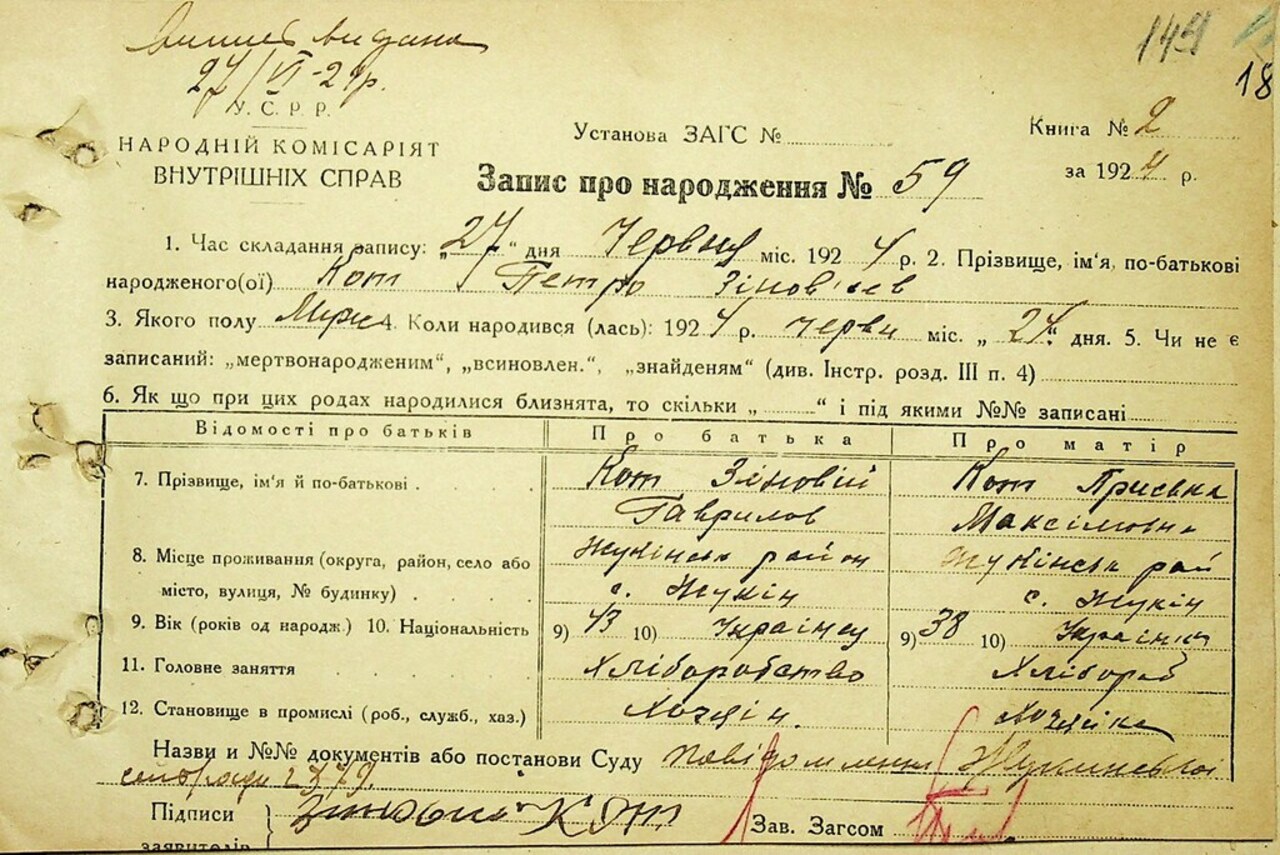 149
18
27/VI-24р.
У. С. Р. Р.
НАРОДНІЙ КОМІСАРІЯТ
ВНУТРІШНІХ СПРАВ
Установа ЗАГС №
Книга № 2
за 1924 р.
Запис про народження № 59
1. Час складання запису: „27“ дня Червня міс. 1924 р. 2. Прізвище, ім'я, по-батькові
народженого(ої) Кот Петро Зінов'єв
3. Якого полу 4. Коли народився (лась): 1924 р. червн міс. „24“ дня. 5. Чи не є
записаний: „мертвонародженим“, „всиновлен.“, „знайденям“ (див. Інстр. розд. III п. 4)
6. Як що при цих родах народилися близнята, то скільки „ “ і під якими №№ записані
Відомості про батьків Про батька Про матір
7. Прізвище, ім'я й по-батькові . Кот Зіновій Кот Приська
Гаврилов Максімовна
8. Місце проживання (округа, район, село або Жукінськ район Жукінськ рай
місто, вулиця, № будинку) . с. Жукін с. Жукін
9. Вік (років од народж.) 10. Національність 9) 43 10) Українец 9) 38 10) Українка
11. Головне заняття Хліборобство Хлібороб
12. Становище в промислі (роб., служб., хаз.) Хозяін. Хозяйка
Назви и №№ документів або постанови Суду повідомлення Жукинської
сельради
Підписи Зіновий Кот
Зав. Загсом
заявителів